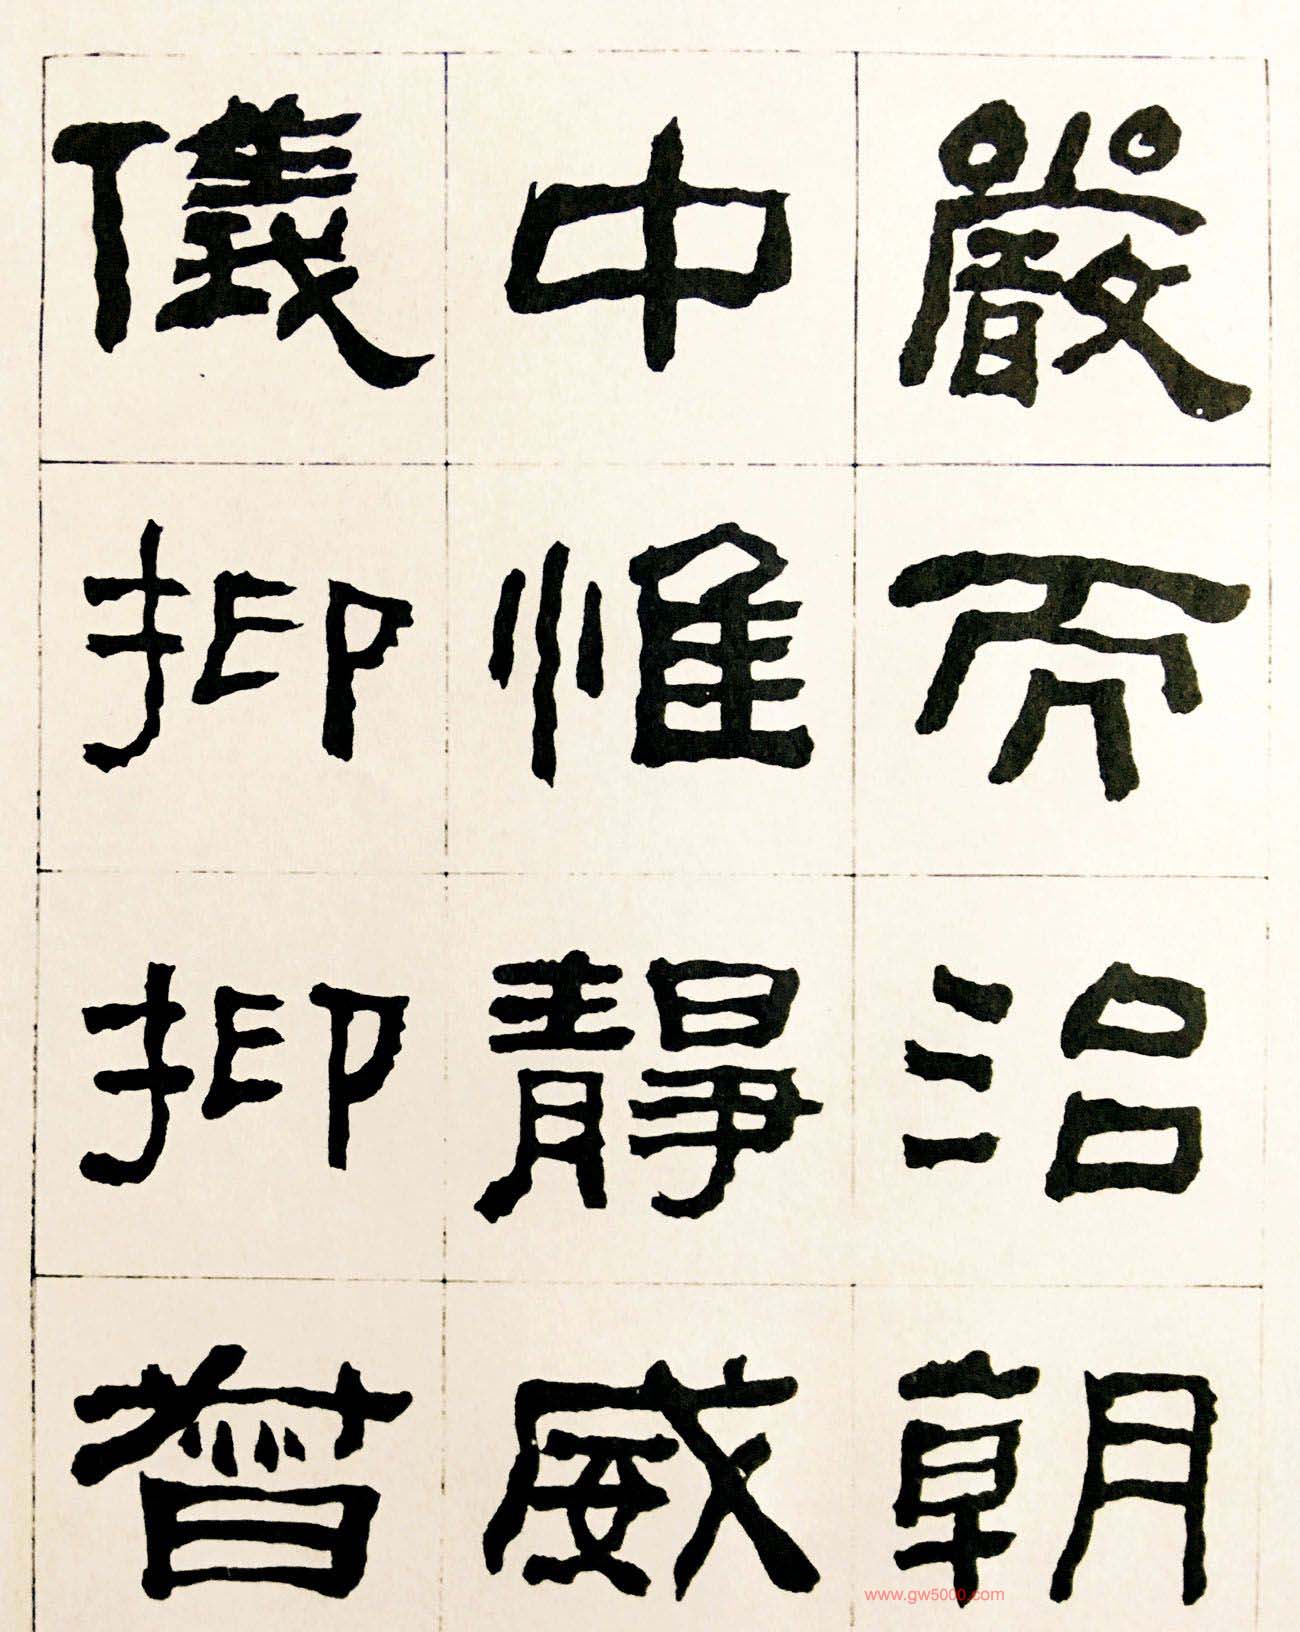 嚴而治朝
中惟靜威
儀抑抑督
www.gw5000.com